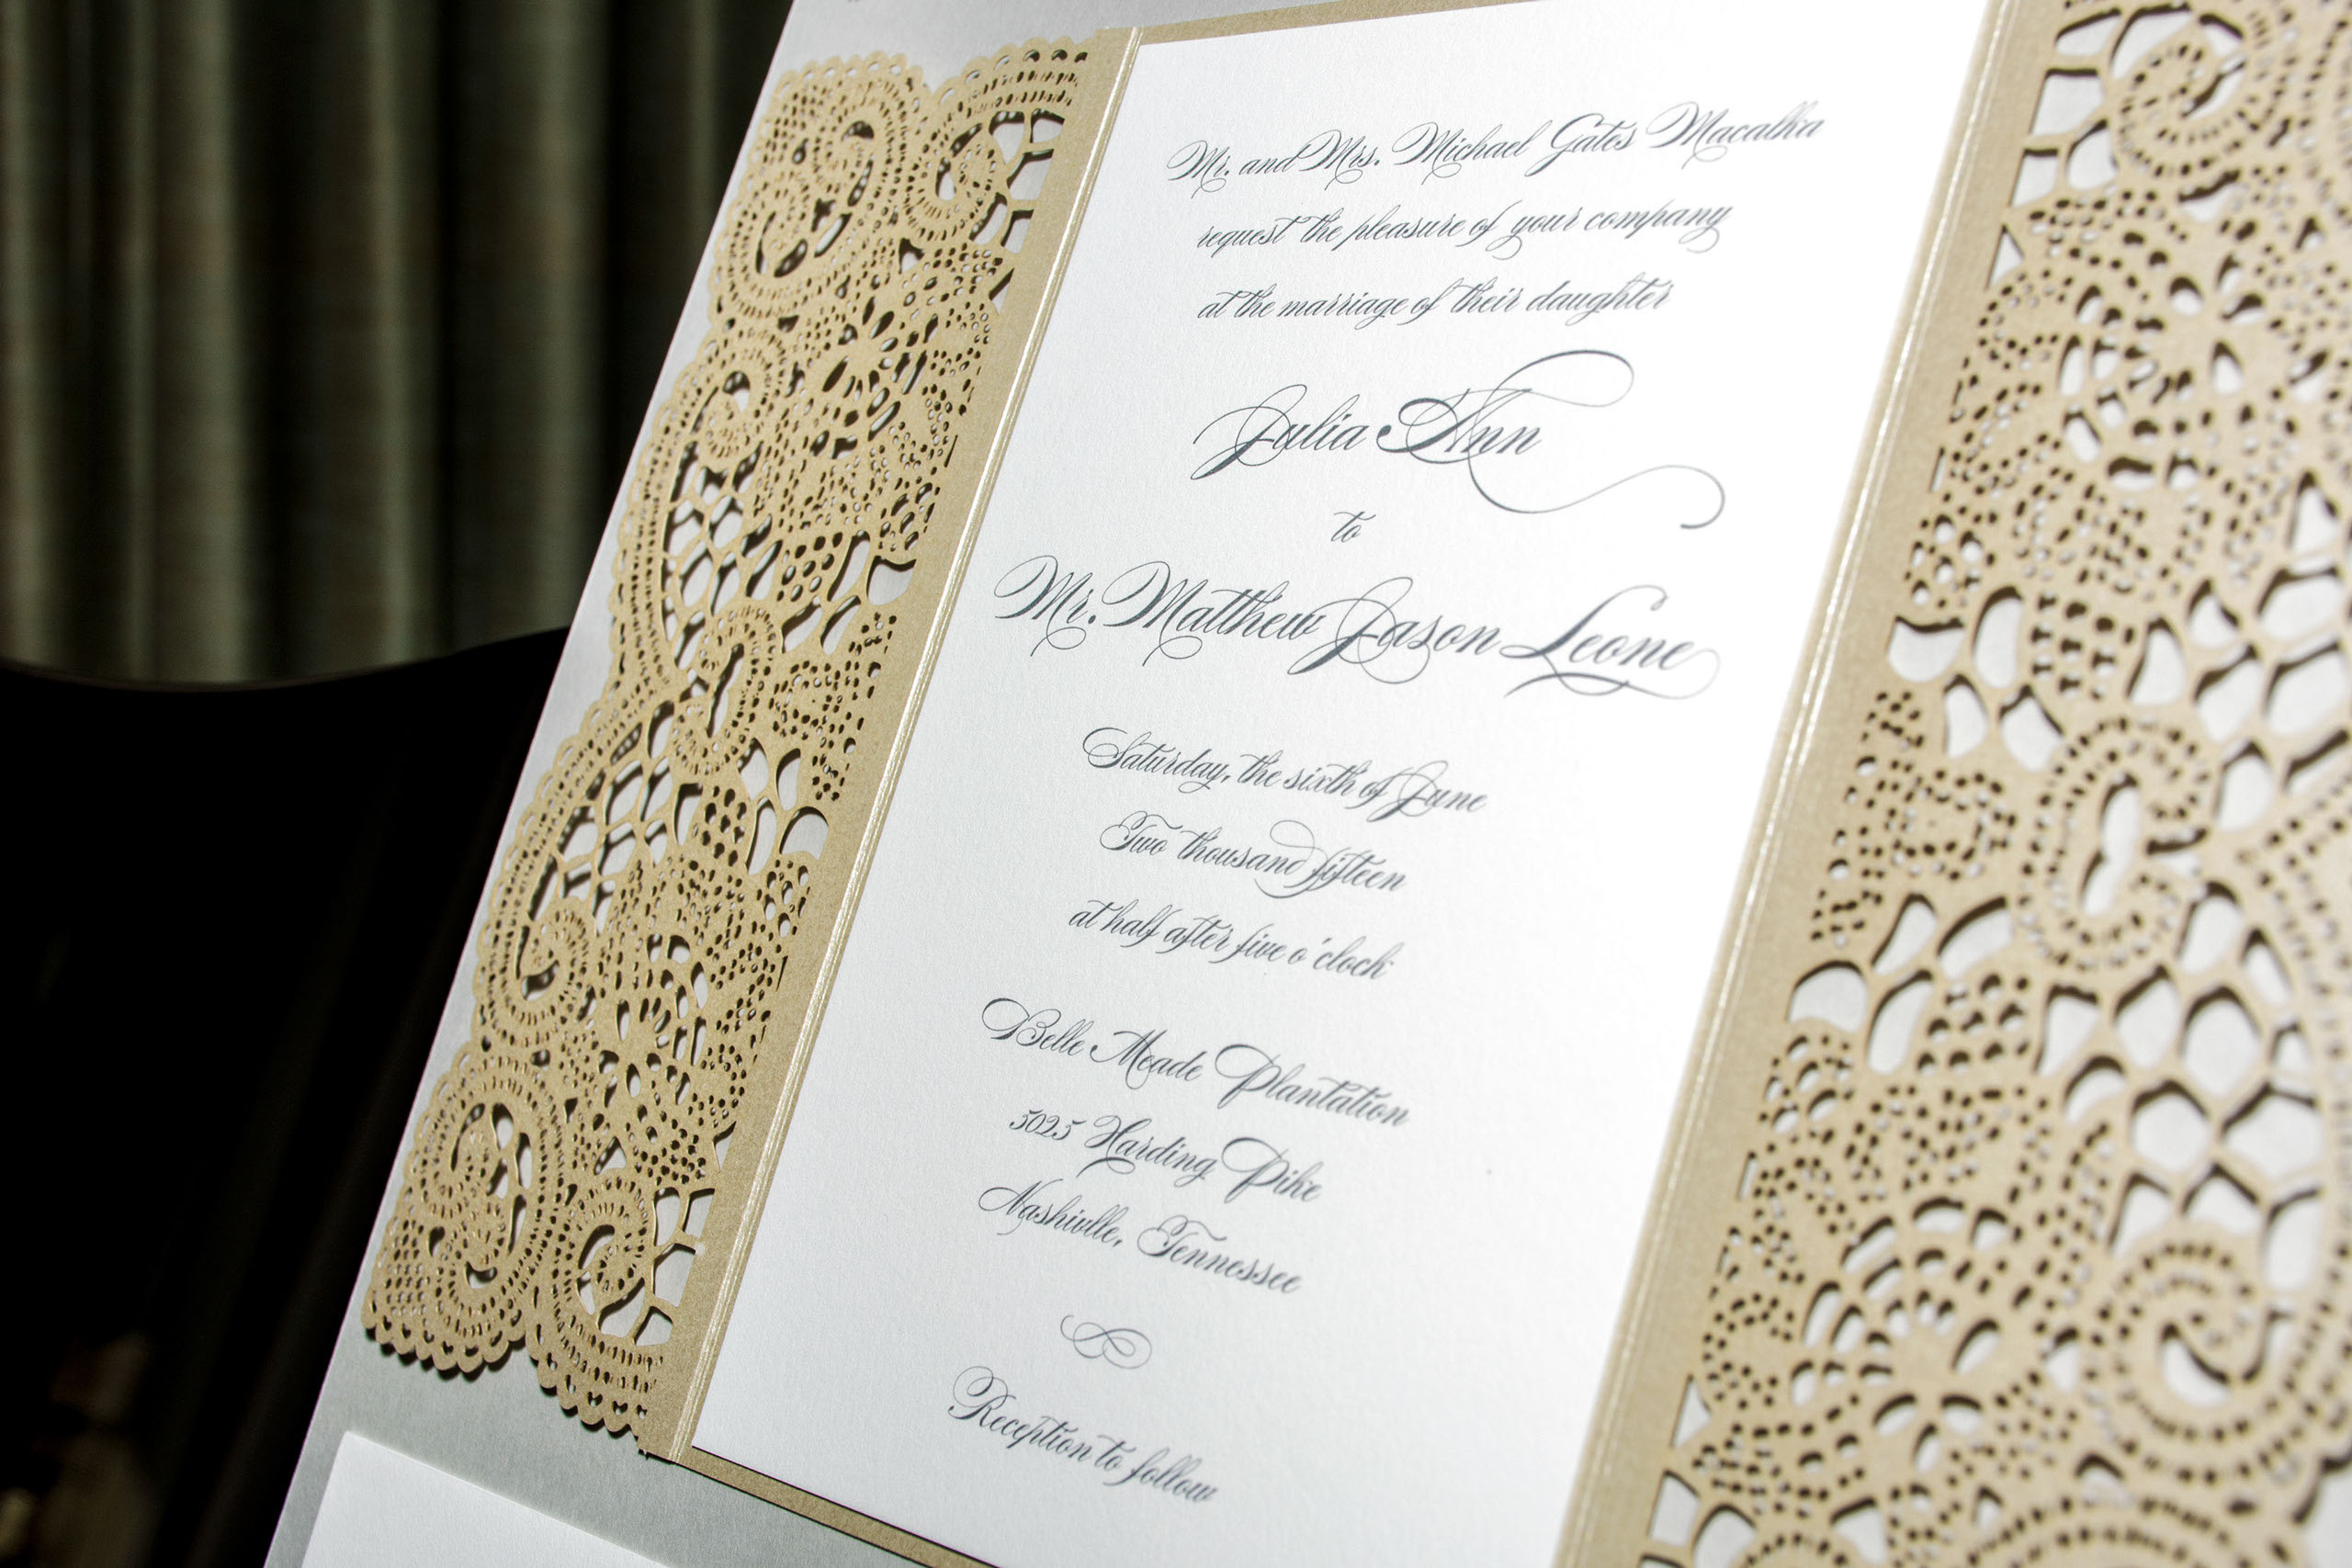 Mr. and Mrs. Michael Gates Macalka
request the pleasure of your company
at the marriage of their daughter
Julia Ann
to
Mr. Matthew Jason Leone
Saturday, the sixth of June
Two thousand fifteen
at half after five o'clock
Belle Meade Plantation
5025 Harding Pike
Nashivlle, Tennessee
Reception to follow